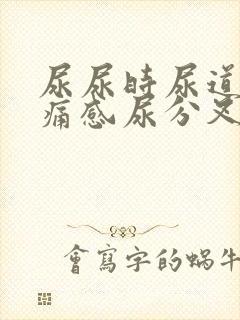 尿尿時尿道
痛感尿分叉
會寫字的蝸牛